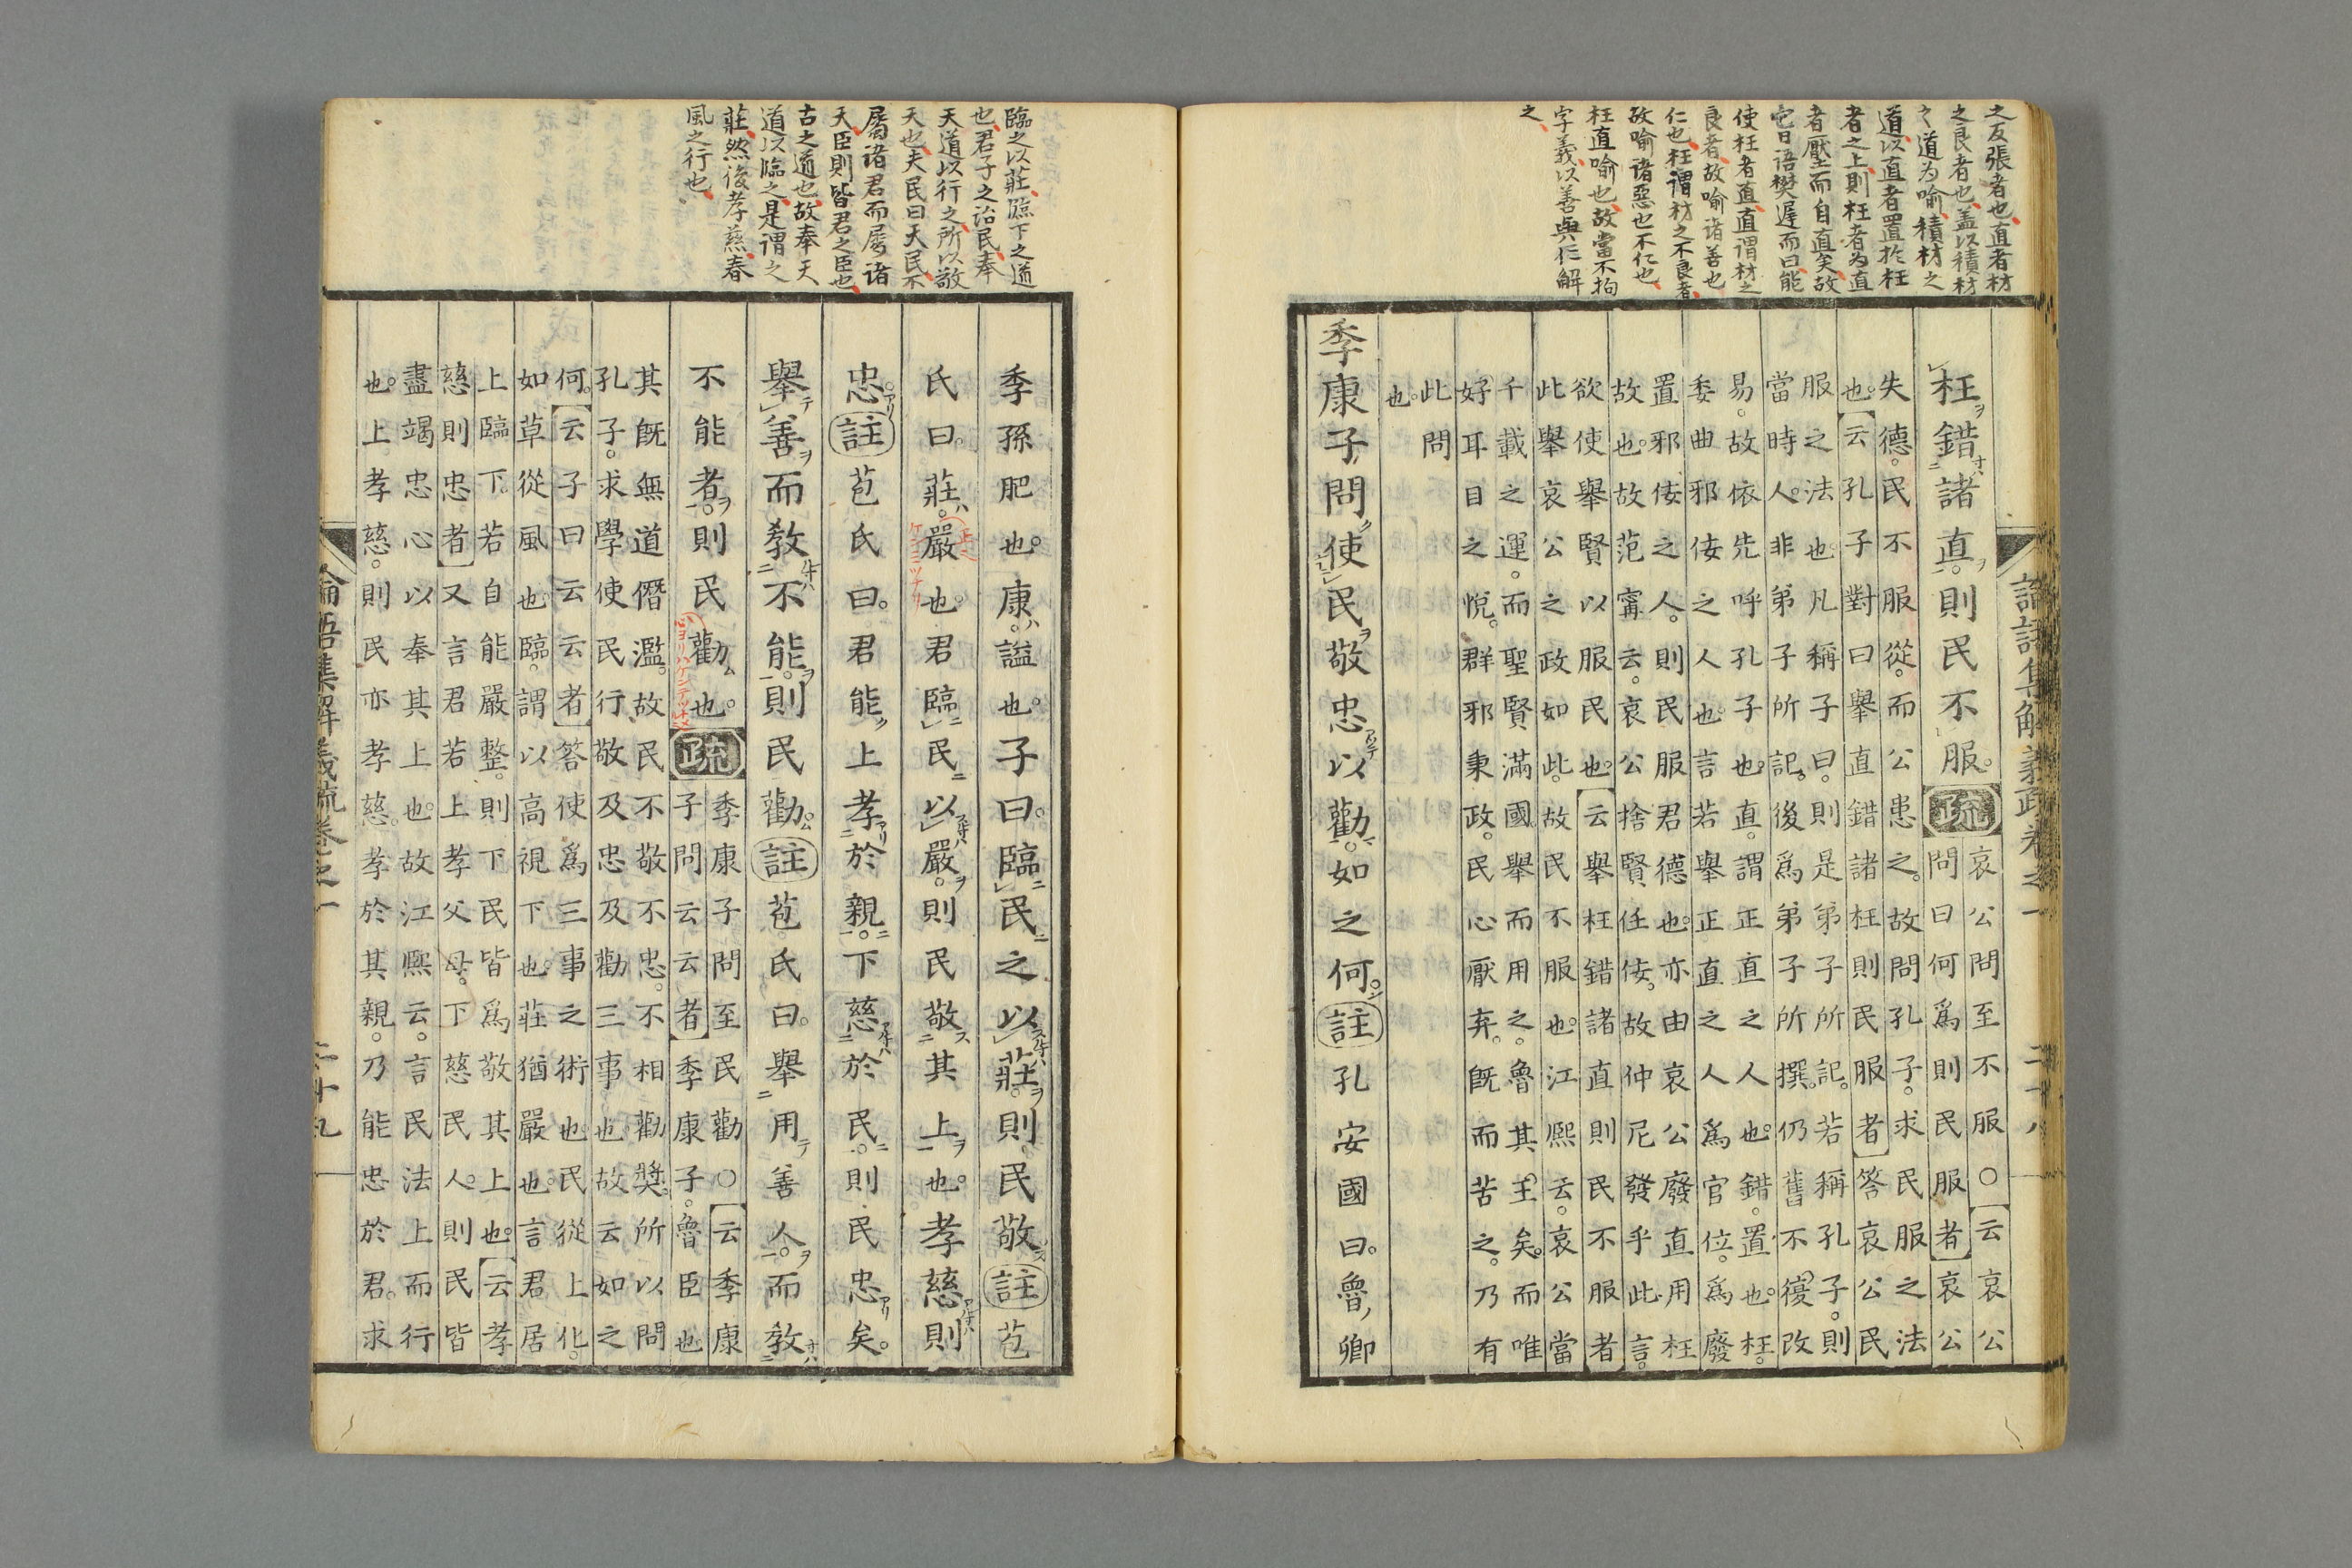 之反張者也直者材
之良者也盖以積材
之道为喻積材之
道以直者置於枉
者之上則枉者为直
者壓而自直矣故
它日語樊遲而曰能
使枉者直直謂材之
良者故喻諸善也
仁也枉謂材之不良者
故喻諸惡也不仁也
枉直喻也故當不拘
字義以善與仁解
之
論語集解義疏卷之一 二十八
枉錯諸直則民不服。疏
哀公問至不服○云哀公
問曰何爲則民服者哀公
失德。民不服從。而公患之。故問孔子。求民服之法
也。云孔子對曰舉直錯諸枉則民服者答哀公民
服之法也。凡稱子曰。則是弟子所記。若稱孔子。則
當時人。非弟子所記。後爲弟子所撰。仍舊不復改
易。故依先呼孔子也。直。謂正直之人也。錯。置也。枉。
委曲邪佞之人也。言若舉正直之人爲官位。爲廢
置邪佞之人。則民服君德也。亦由哀公廢直用枉
故也。故范寗云。哀公捨賢任佞。故仲尼發乎此言。
欲使舉賢以服民也。云舉枉錯諸直則民不服者
此舉哀公之政如此。故民不服也。江熙云。哀公當
千載之運。而聖賢滿國。舉而用之。魯其王矣。而唯
好耳目之悅。群邪秉政。民心厭弃。既而苦之。乃有
此問
也。
季康子問使民敬忠以勸。如之何。註孔安國曰。魯卿
臨之以莊臨下之道
也君子之治民奉
天道以行之所以敬
天也夫民曰天民不
屬諸君而屬諸
天臣則皆君之臣也
古之道也故奉天
道以臨之是謂之
莊然後孝慈春
風之行也
季孫肥也。康。謚也。子曰。臨民之以莊。則民敬註苞
氏曰。莊。嚴也。君臨民以嚴。則民敬其上也。孝慈則
忠。註苞氏曰。君能上孝於親。下慈於民。則民忠矣。
舉善而敎不能。則民勸。註苞氏曰。舉用善人。而敎
不能者。則民勸也。疏
季康子問至民勸○云季康
子問云云者季康子。魯臣也
其既無道僭濫。故民不敬不忠。不相勸奬。所以問
孔子。求學使民行敬及忠及勸三事也故云如之
何。云子曰云云者答使爲三事之術也。民從上化。
如草從風也。臨。謂以高視下也。莊猶嚴也。言君居
上臨下。若自能嚴整。則下民皆爲敬其上也。云孝
慈則忠者又言君若上孝父母。下慈民人。則民皆
盡竭忠心以奉其上也。故江熙云。言民法上而行
也。上孝慈。則民亦孝慈。孝於其親。乃能忠於君。求
論語集解義疏卷之一 二十九